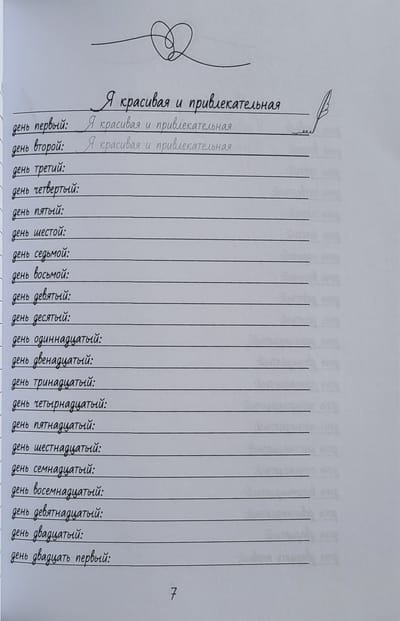 Я красивая и привлекательная
день первый: Я красивая и привлекательная
день второй: Я красивая и привлекательная
день третий:
день четвертый:
день пятый:
день шестой:
день седьмой:
день восьмой:
день девятый:
день десятый:
день одиннадцатый:
день двенадцатый:
день тринадцатый:
день четырнадцатый:
день пятнадцатый:
день шестнадцатый:
день семнадцатый:
день восемнадцатый:
день девятнадцатый:
день двадцатый:
день двадцать первый:
7